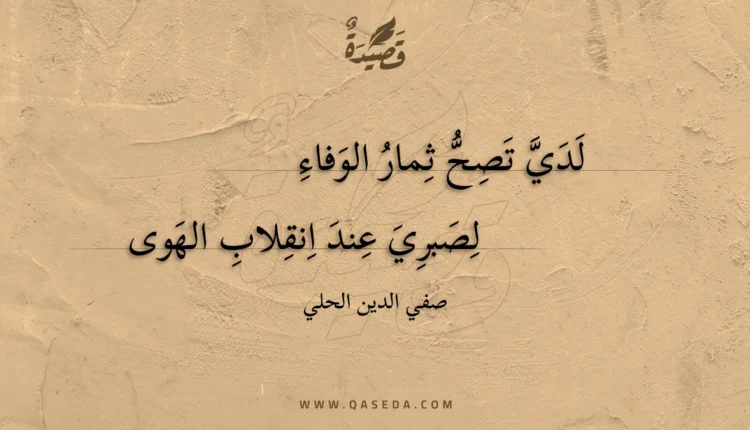 قَصِيدَةٌ
لَدَيَّ تَصِحُّ ثِمارُ الوَفاءِ
لِصَبرِيَ عِندَ اِنقِلابِ الهَوى
صفي الدين الحلي
WWW.QASEDA.COM